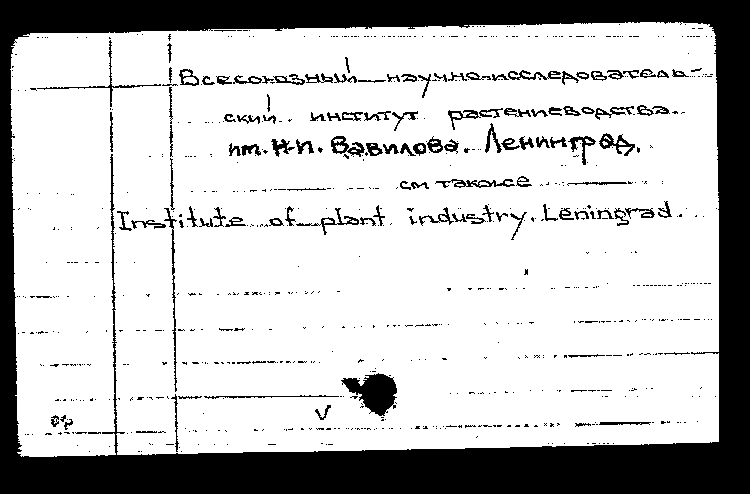 Всесоюзный научно-исследователь-
ский институт растениеводства.
им. Н.И. Вавилова. Ленинград.
см также
Institute of plant industry. Leningrad.
оф
V